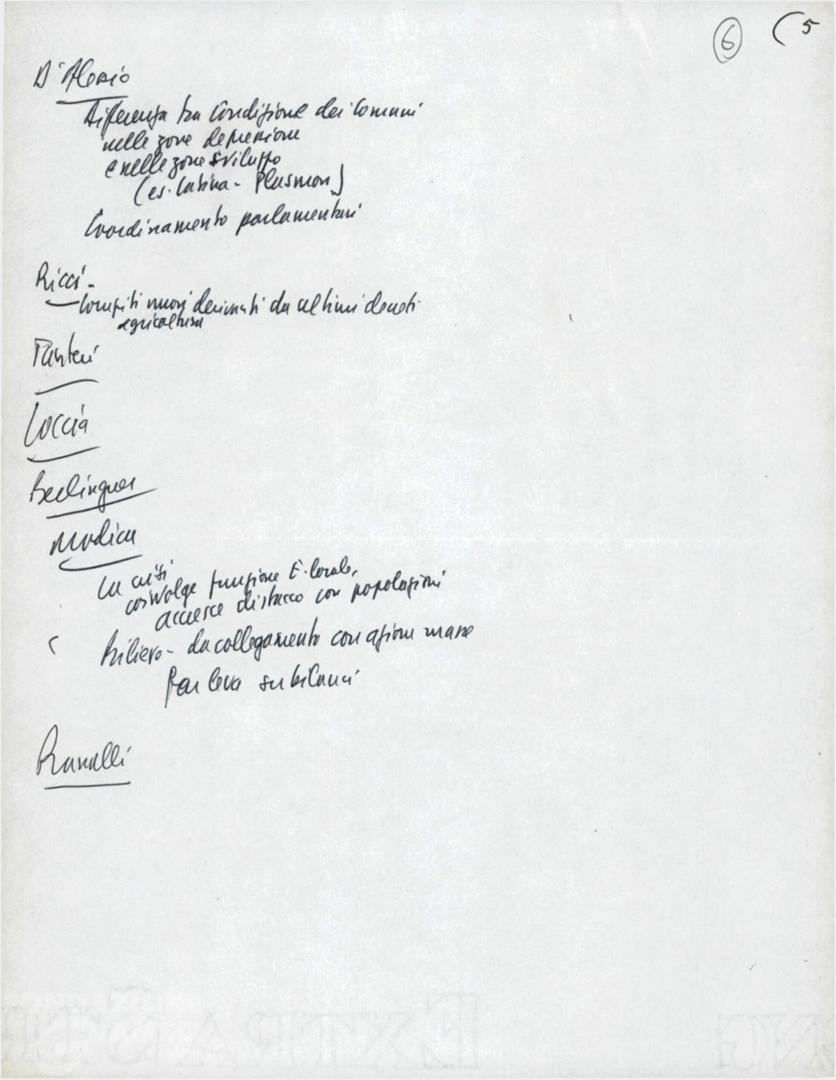 6 ( 5
D'Alessio
Differenza tra condizione dei Comuni
nelle zone depressione
e nelle zone sviluppo
(es. Latina - Plasmon)
Coordinamento parlamentari
Ricci -
Compiti nuovi derivati da ultimi decreti
agricoltura
Loccia
Berlinguer
Modica
La crisi
coinvolge funzione E. locale,
accresce distacco con popolazioni
Rilievo - da collegamento con azione masse
Far leva su bilanci
Ranalli
EXTRA S